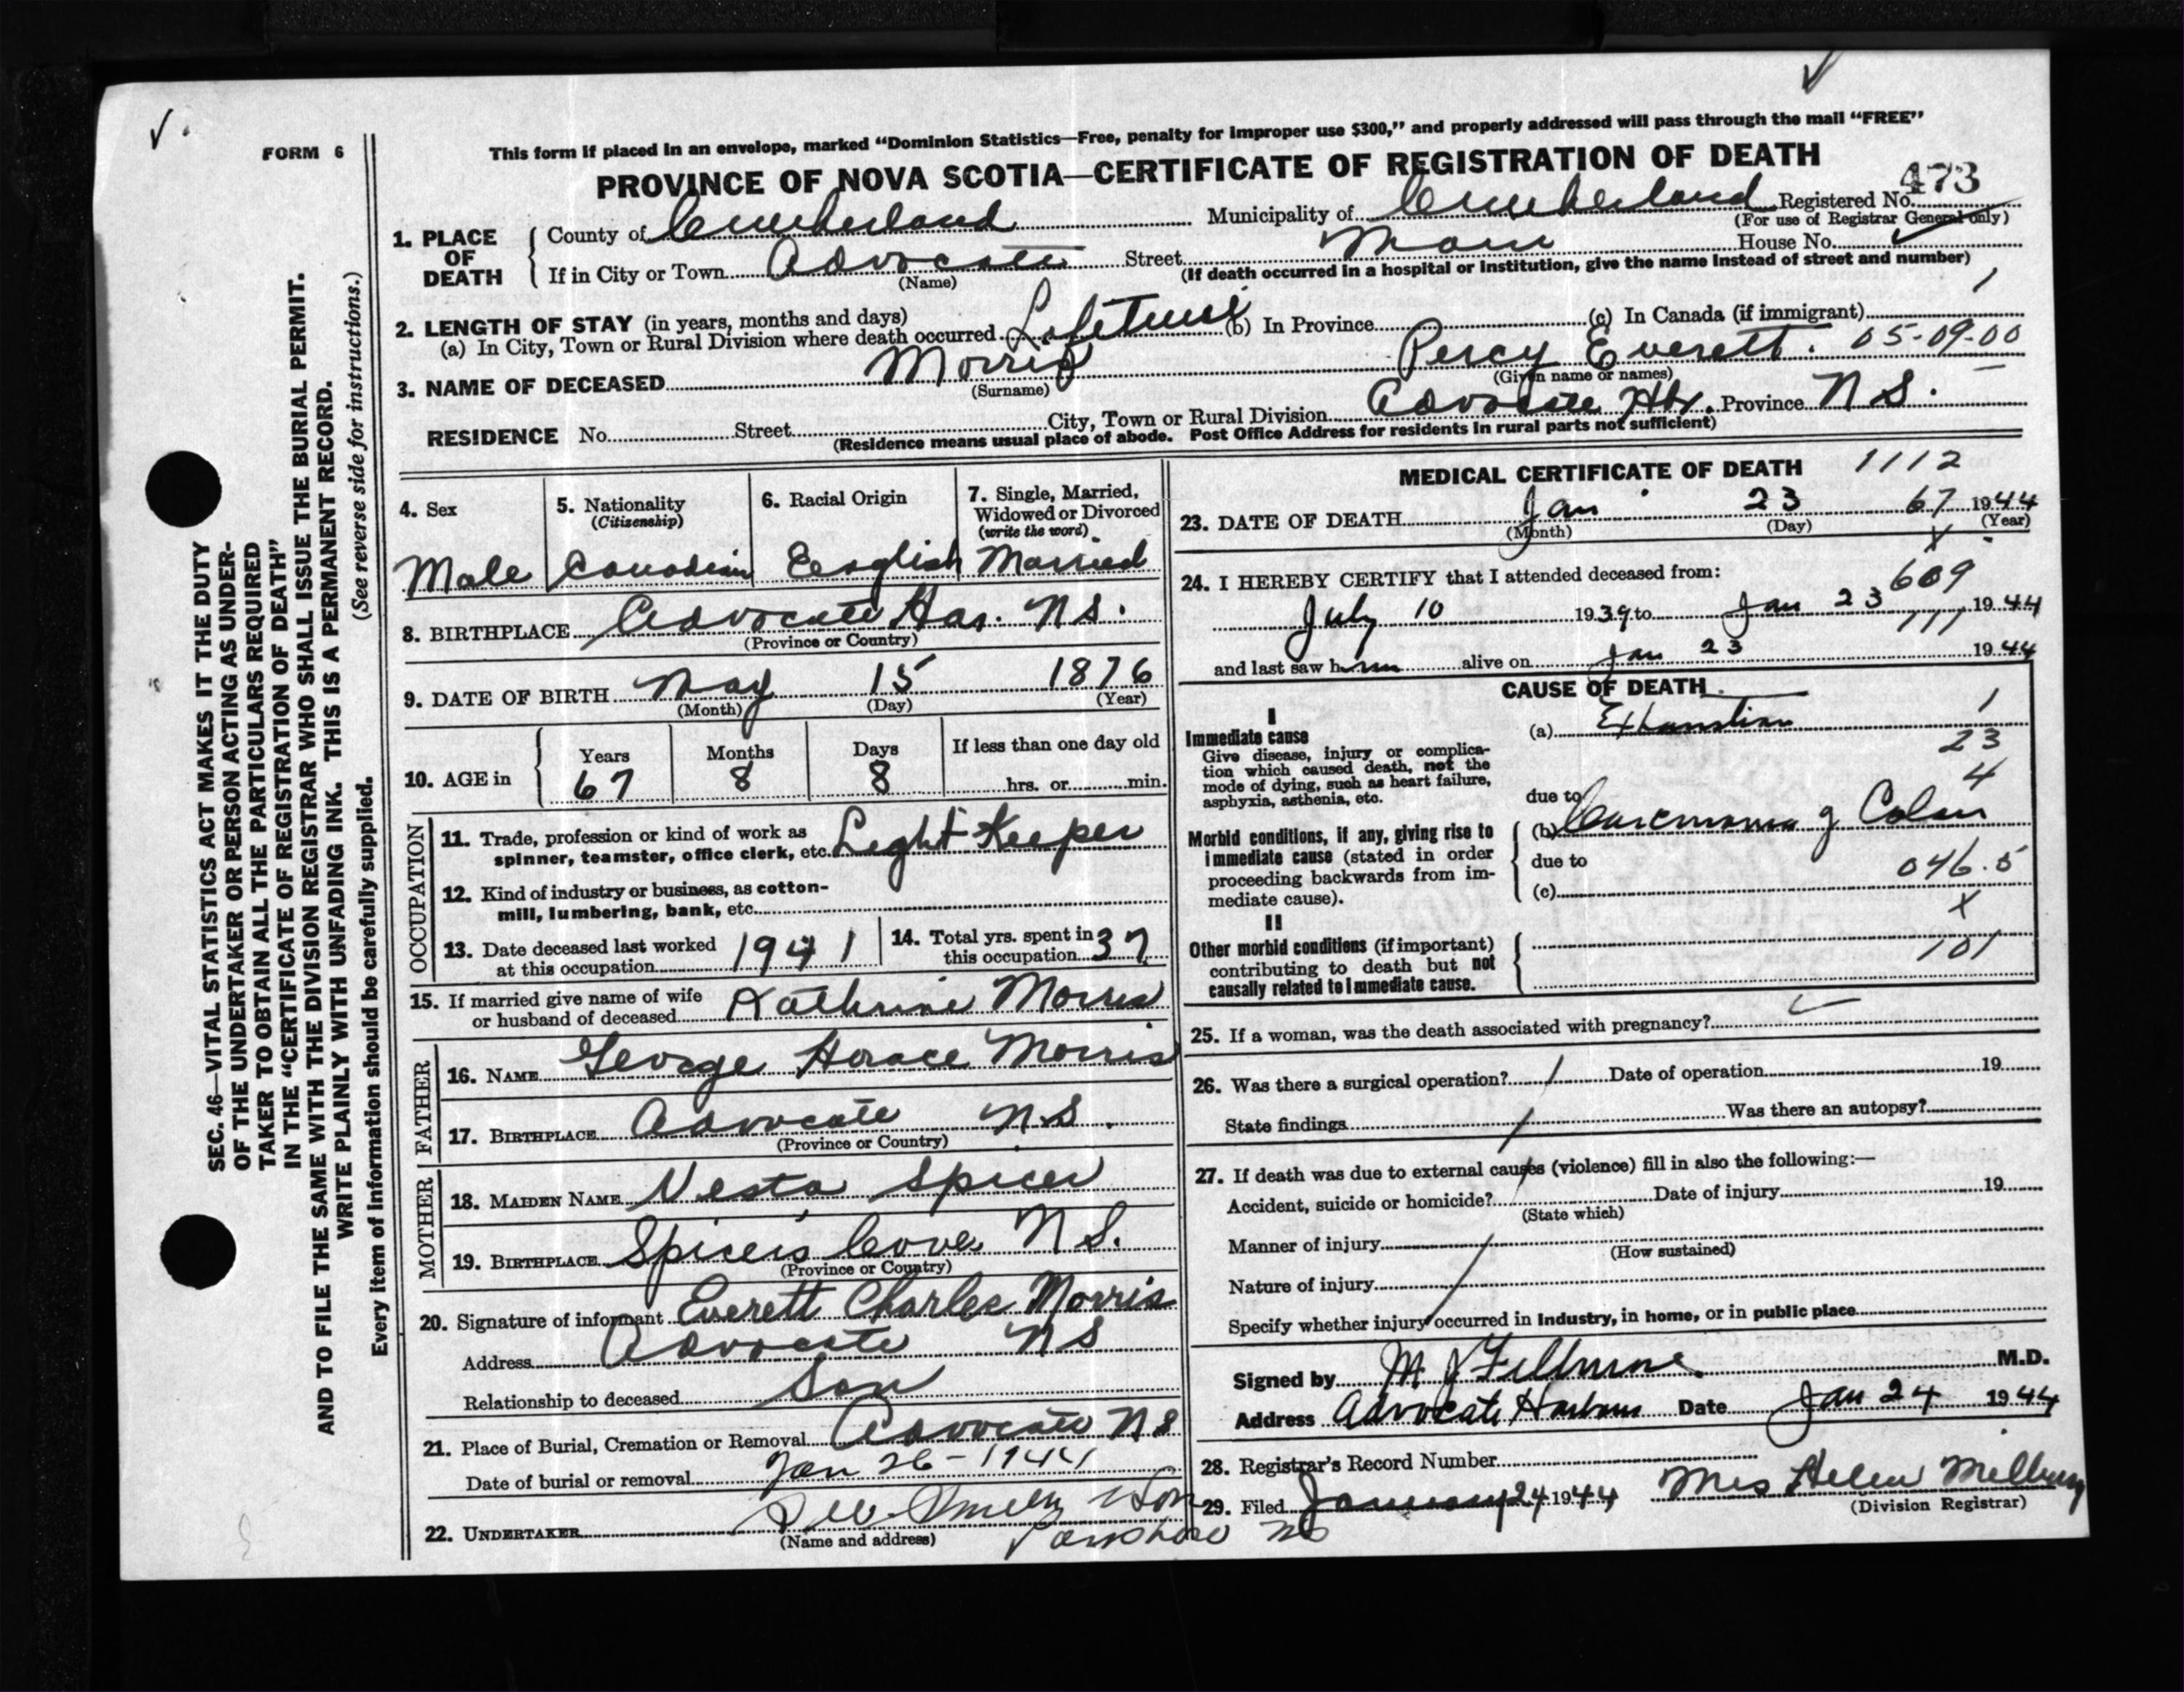 FORM 6
This form if placed in an envelope, marked "Dominion Statistics—Free, penalty for improper use $300," and properly addressed will pass through the mail "FREE"
PROVINCE OF NOVA SCOTIA—CERTIFICATE OF REGISTRATION OF DEATH
473
1. PLACE OF DEATH
County of Cumberland Municipality of Cumberland Registered No.
(For use of Registrar General only)
If in City or Town Advocate Street Main House No.
(Name) (If death occurred in a hospital or institution, give the name instead of street and number)
2. LENGTH OF STAY (in years, months and days)
(a) In City, Town or Rural Division where death occurred Lifetime (b) In Province (c) In Canada (if immigrant)
3. NAME OF DECEASED Morris Percy Everett. 05-09-00
(Surname) (Given name or names)
RESIDENCE No. Street City, Town or Rural Division Advocate Hbr. Province N S.
(Residence means usual place of abode. Post Office Address for residents in rural parts not sufficient)
4. Sex
Male
5. Nationality
(Citizenship)
Canadian
6. Racial Origin
English
7. Single, Married, Widowed or Divorced
(write the word)
Married
8. BIRTHPLACE Advocate Har. N S.
(Province or Country)
9. DATE OF BIRTH May 15 1876
(Month) (Day) (Year)
10. AGE in
Years Months Days If less than one day old
67 8 8 hrs. or min.
OCCUPATION
11. Trade, profession or kind of work as
spinner, teamster, office clerk, etc. Light Keeper
12. Kind of industry or business, as cotton-
mill, lumbering, bank, etc.
13. Date deceased last worked
at this occupation 1941
14. Total yrs. spent in
this occupation 37
15. If married give name of wife
or husband of deceased Kathrine Morris
FATHER
16. NAME George Horace Morris
17. BIRTHPLACE Advocate N S.
(Province or Country)
MOTHER
18. MAIDEN NAME Vesta Spicer
19. BIRTHPLACE Spicer's Cove N S.
(Province or Country)
20. Signature of informant Everett Charles Morris
Address Advocate N S
Relationship to deceased Son
21. Place of Burial, Cremation or Removal Advocate N S
Date of burial or removal Jan 26-1944
22. UNDERTAKER & Son
(Name and address) Parrsboro N S
MEDICAL CERTIFICATE OF DEATH 1112
23. DATE OF DEATH Jan 23 67 1944
(Month) (Day) (Year)
X
24. I HEREBY CERTIFY that I attended deceased from:
609
July 10 1939 to Jan 23 1944
111
and last saw him alive on Jan 23 1944
CAUSE OF DEATH
I
Immediate cause
Give disease, injury or complica-
tion which caused death, not the
mode of dying, such as heart failure,
asphyxia, asthenia, etc.
(a) Exhaustion 1
23
4
due to
Morbid conditions, if any, giving rise to
immediate cause (stated in order
proceeding backwards from im-
mediate cause).
(b) Carcinoma of Colon
due to
(c) 046.5
X
II
Other morbid conditions (if important)
contributing to death but not
causally related to immediate cause.
101
25. If a woman, was the death associated with pregnancy?
26. Was there a surgical operation? Date of operation 19
State findings Was there an autopsy?
27. If death was due to external causes (violence) fill in also the following:—
Accident, suicide or homicide? Date of injury 19
(State which)
Manner of injury
(How sustained)
Nature of injury
Specify whether injury occurred in industry, in home, or in public place
Signed by M. M.D.
Address Advocate Harbour Date Jan 24 1944
28. Registrar's Record Number
29. Filed January 24 1944 Mrs Helen
(Division Registrar)
SEC. 46—VITAL STATISTICS ACT MAKES IT THE DUTY
OF THE UNDERTAKER OR PERSON ACTING AS UNDER-
TAKER TO OBTAIN ALL THE PARTICULARS REQUIRED
IN THE "CERTIFICATE OF REGISTRATION OF DEATH"
AND TO FILE THE SAME WITH THE DIVISION REGISTRAR WHO SHALL ISSUE THE BURIAL PERMIT.
WRITE PLAINLY WITH UNFADING INK. THIS IS A PERMANENT RECORD.
(See reverse side for instructions.)
Every item of information should be carefully supplied.